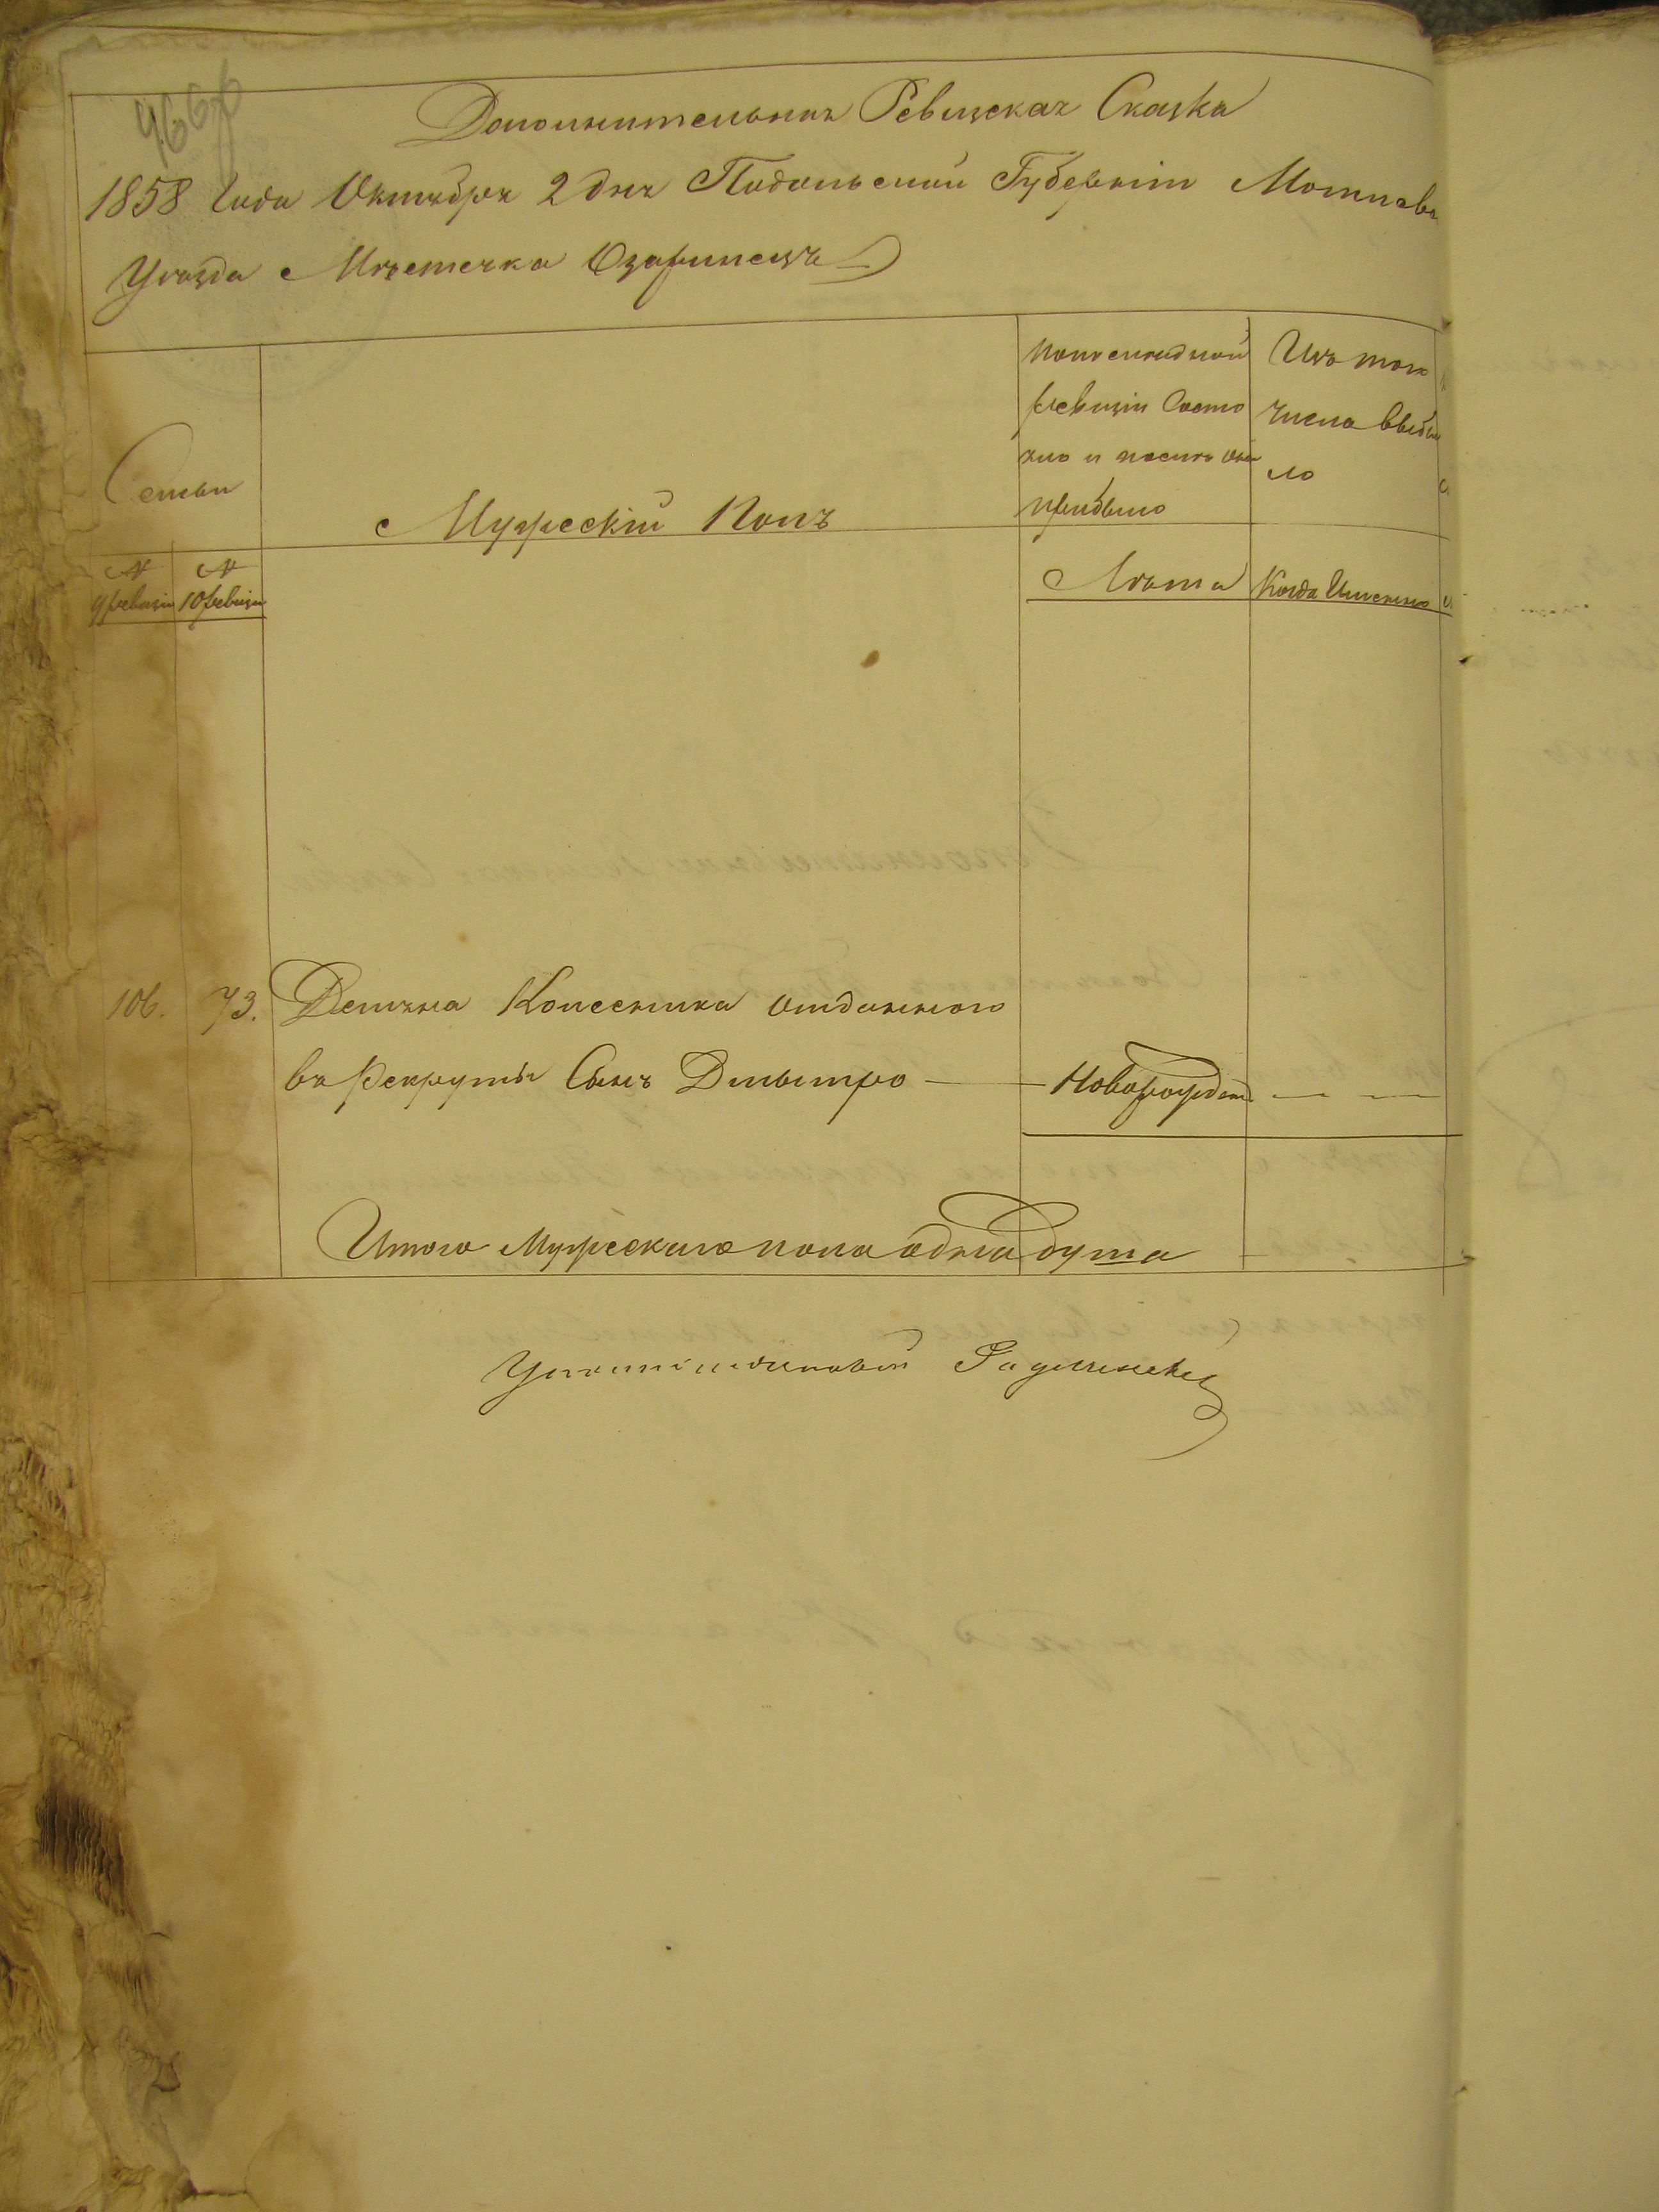 466
Дополнительная Ревизская Сказка
1858 Года Октября 2 дня Подольской Губерніи Могилевъ
Уезда Мѣстечка Озаринецъ
Семьи
Мужескій Полъ
Сколько по последней
ревизіи Состо
яло и после
прибыло
Изъ того
числа выбы
ло
№
№
9 ревизіи
10 ревизіи
Лѣта
Когда Именно
106.
73.
Демяна Колесника отданного
въ рекруты Сынъ Дмытро
Новорожден
Итого Мужеского пола одна душа